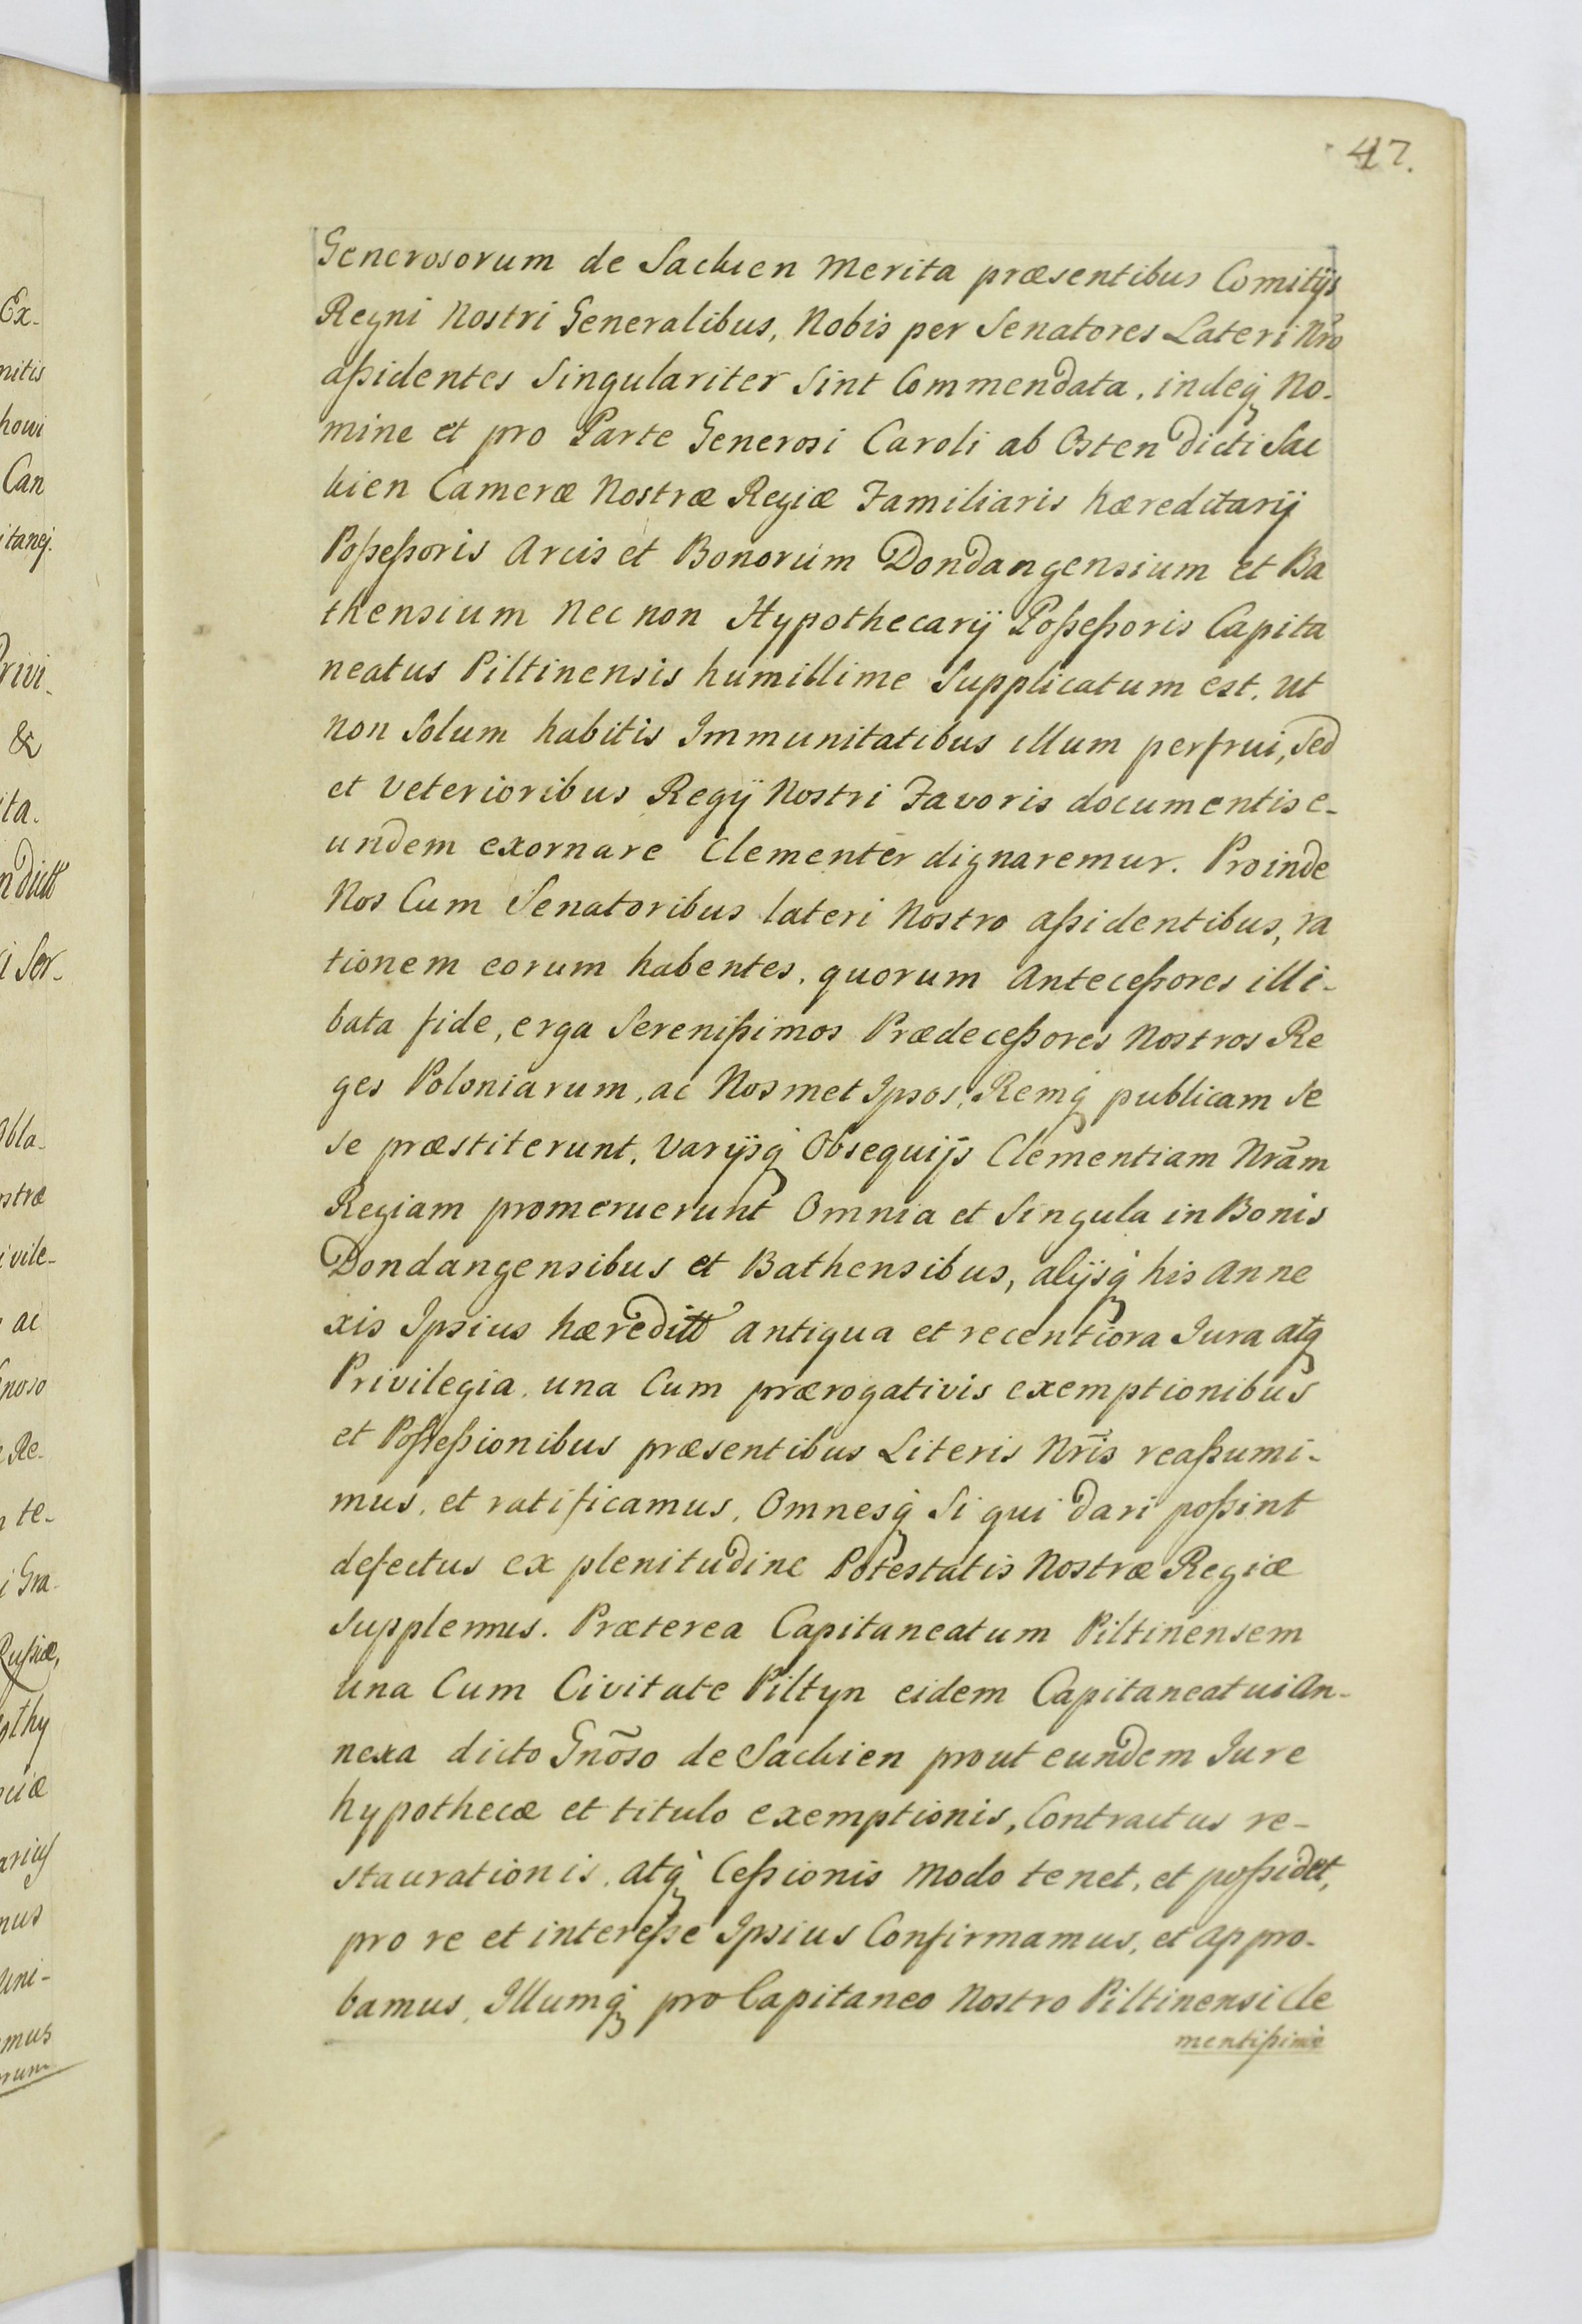 47.
Generosorum de Sacken merita præsentibus Comitijs
Regni Nostri Generalibus, Nobis per Senatores Lateri Nr̃o
aßidentes Singulariter Sint Commendata, indeq₃ No-
mine et pro Parte Generosi Caroli ab Osten dicti Sac
ken Cameræ Nostræ Regiæ Familiaris hæreditarij
Poßeßoris Arcis et Bonorum Dondangensium et Ba
thensium Nec non Hypothecarij Poßeßoris Capita
neatus Piltinensis humillime Supplicatum est. Ut
non Solum habitis Immunitatibus illum perfrui, Sed
et veterioribus Regij Nostri Favoris documentis e-
undem exornare Clementer dignaremur. Proinde
Nos Cum Senatoribus lateri Nostro aßidentibus, ra
tionem eorum habentes, quorum Anteceßores illi-
bata fide, erga Sereni߬imos Prædeceßores Nostros Re
ges Poloniarum, ac Nosmet Ipsos, Remq₃ publicam Se
se præstiterunt, Varijsq₃ Obsequijs Clementiam Nr̃am
Regiam promeruerunt Omnia et Singula in Bonis
Dondangensibus et Bathensibus, alijsq₃ his Anne
xis Ipsius hæreditt antiqua et recentiora Iura atq₃
Privilegia, una Cum prærogativis exemptionibus
et Poßeßionibus præsentibus Literis Nr̃is reaßumi-
mus, et ratificamus, Omnesq₃ Si qui dari poßint
defectus ex plenitudine Potestatis Nostræ Regiæ
supplemus. Præterea Capitaneatum Piltinensem
una Cum Civitate Piltyn eidem Capitaneatui An-
nexa dicto Gnõso de Sacken prout eundem Iure
hypothecæ et titulo exemptionis, Contractus re-
staurationis, atq₃ Ceßionis modo tenet, et poßidet,
pro re et intereße Ipsius Confirmamus, et appro-
bamus, Illumq₃ pro Capitaneo Nostro Piltinensi Cle
mentißimè
Ex-
nitis
howi
Can
itanej.
Privi-
&
ita.
n dictt
i Ser-
Abla-
ostræ
ivile-
ac
Gnoso
Re-
te-
i Gra-
Rußiæ,
othy
ciæ
arius
mus
Uni-
mus
orum